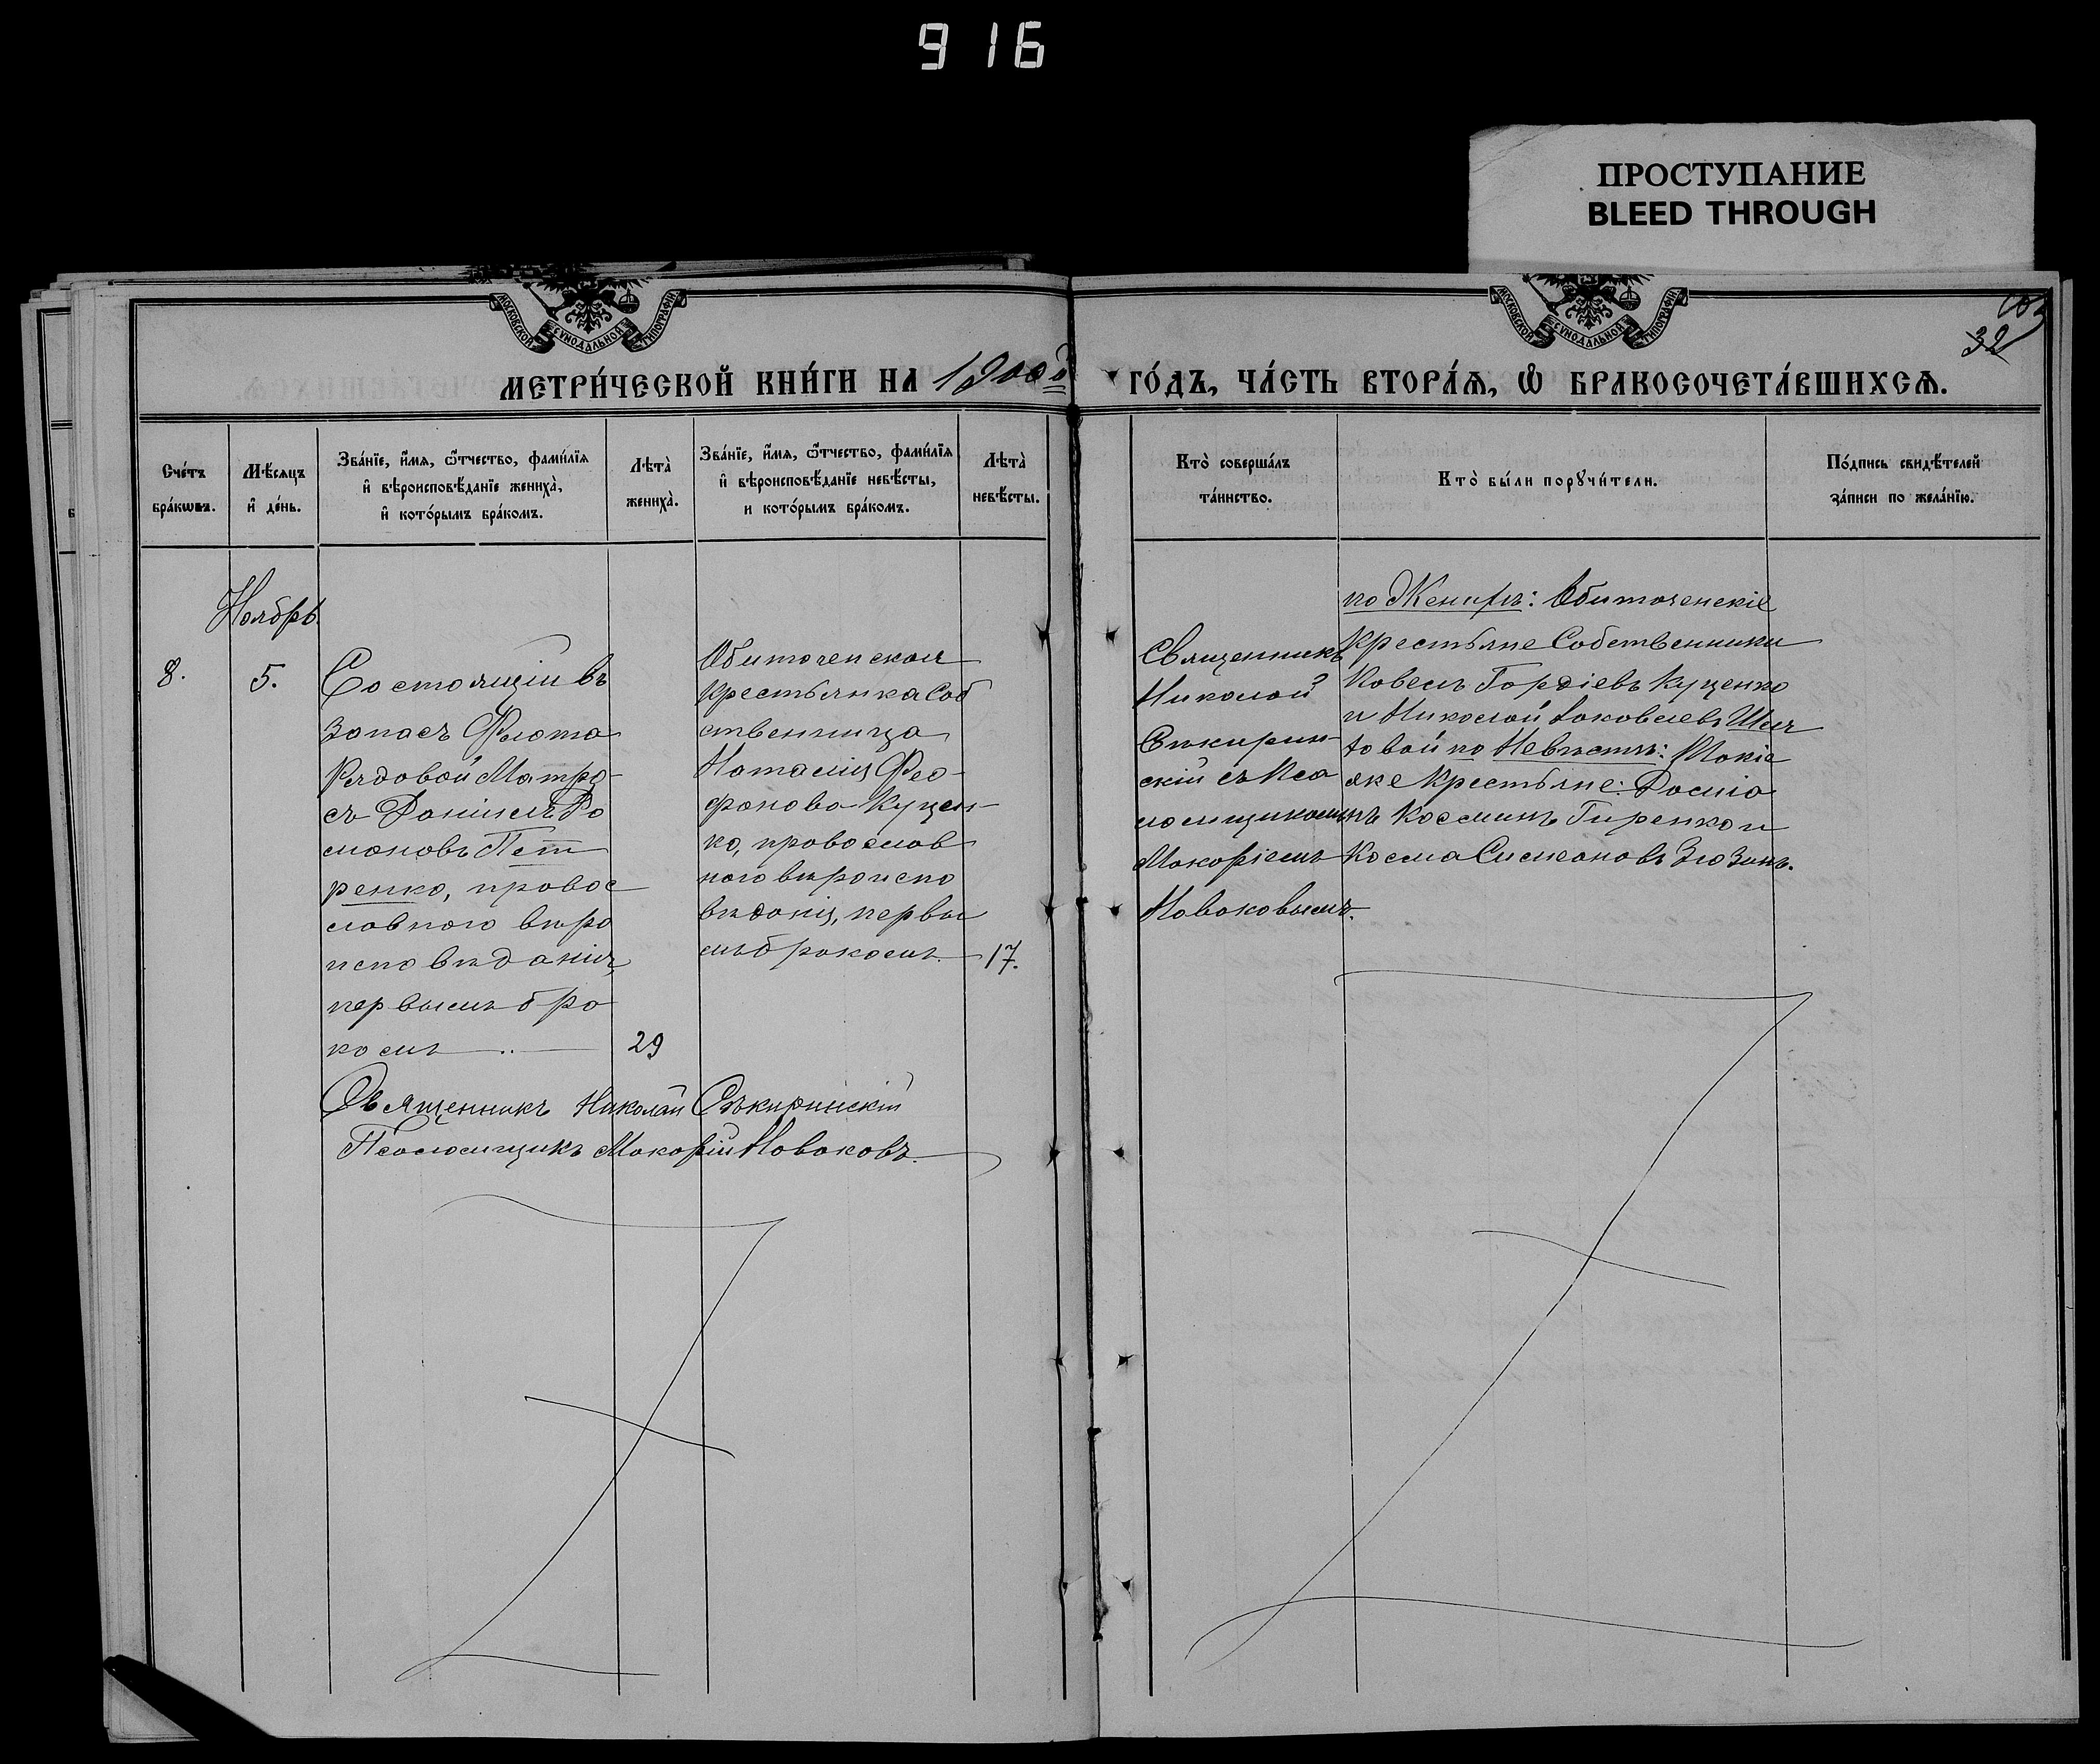 916
ПРОСТУПАНИЕ
BLEED THROUGH
МОСКОВСКОЙ СѴНОДАЛЬНОЙ ТИПОГРАФІИ
МОСКОВСКОЙ СѴНОДАЛЬНОЙ ТИПОГРАФІИ
32
МЕТРИ́ЧЕСКОЙ КНИ́ГИ НА 1900й ГО́ДЪ, ЧА́СТЬ ВТОРА́Ѧ, Ѽ БРАКОСОЧЕТА́ВШИХСѦ.
Сче́тъ
бра́кѡвъ.
Мѣ́сяцъ
и҆ де́нь.
Зва́нїе, и҆́мя, ѻ҆́тчество, фами́лїя
и҆ вѣроисповѣ́данїе жениха̀,
и҆ кото́рымъ бра́комъ.
Лѣта̀
жениха̀.
Зва́нїе, и҆́мя, ѻ҆́тчество, фами́лїя
и҆ вѣроисповѣ́данїе невѣ́сты,
и кото́рымъ бра́комъ.
Лѣта̀
невѣ́сты.
Кто̀ соверша́лъ
та́инство.
Кто̀ бы́ли порꙋчи́тели.
По́дпись свидѣ́телей
за́писи по жела́нїю.
Ноябрь
8.
5.
Состоящій въ
запасѣ Флота
Рядовой Матро-
съ Даніилъ Ро
мановъ Пет
ренко, правос
лавного вѣро
исповѣданія,
первымъ бра
комъ
29
Обиточенская
крестьянка Соб
ственница
Наталія Фео-
фанова Куцен-
ко, православ
ного вѣроиспо
вѣданія, первы
мъ бракомъ.
17.
Священникъ
Николай
Сѣкирин
скій съ Пса
ломщикомъ
Макаріемъ
Новаковымъ.
по Женихѣ: Обиточенскіе
крестьяне Собственники
Павелъ Гордіевъ Куценко
и Николай Іаковлевъ Шел
товой по Невѣстѣ: Такіе
же крестьяне: Даміа
нъ Косминъ Гиренко и
Косма Симеоновъ Злозинъ.
Священникъ Николай Сѣкиринскій
Псаломщикъ Макарій Новаковъ.